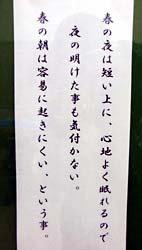 春の夜は短い上に、心地よく眠れるので
夜の明けた事も気付かない。
春の朝は容易に起きにくい、という事。